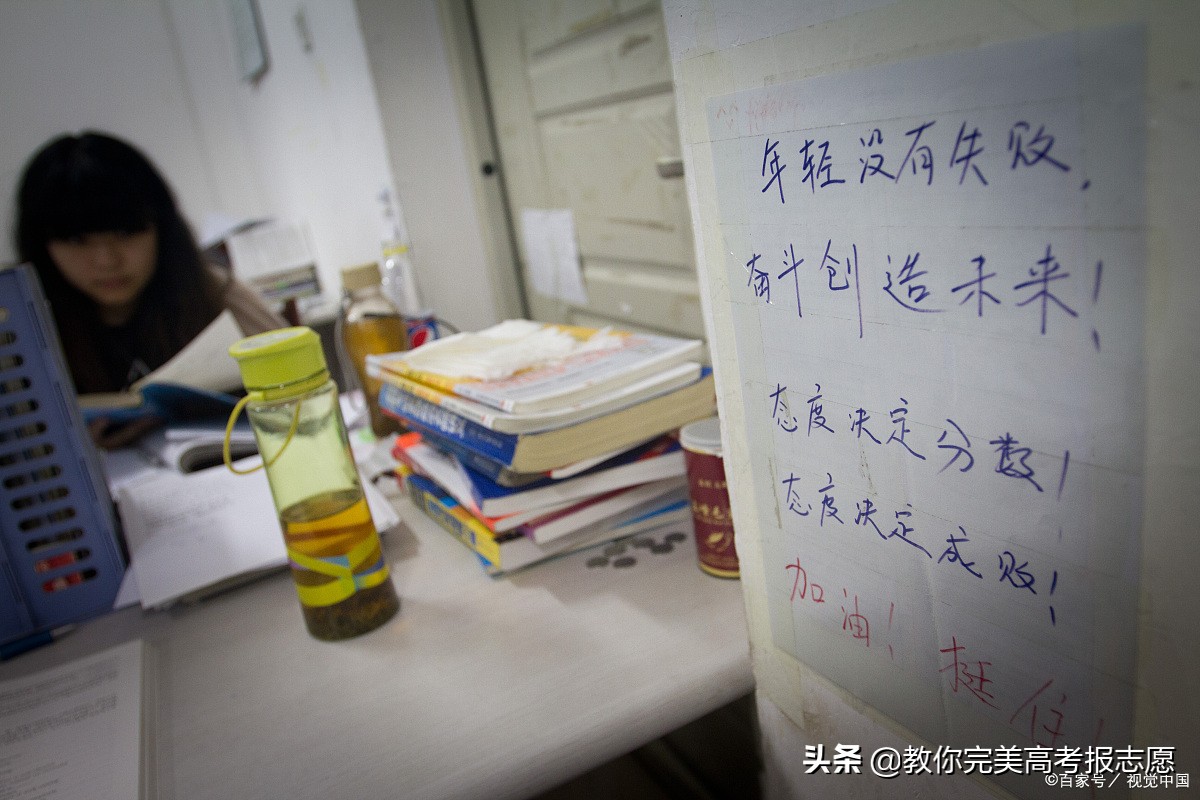 年轻没有失败,
奋斗创造未来!
态度决定分数!
态度决定成败!
加油! 挺住!
头条 @教你完美高考报志愿
©百家号/视觉中国